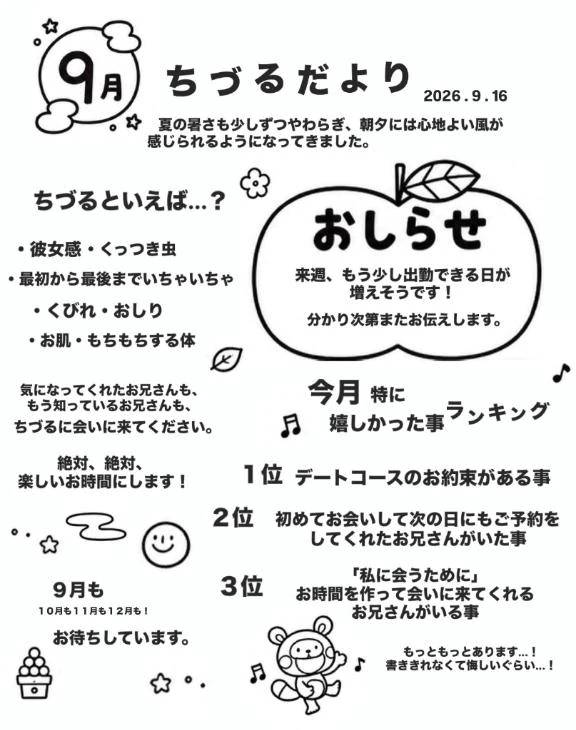 9月
ちづるだより
2026.9.16
夏の暑さも少しずつやわらぎ、朝夕には心地よい風が
感じられるようになってきました。
ちづるといえば...？
・彼女感・くっつき虫
・最初から最後までいちゃいちゃ
・くびれ・おしり
・お肌・もちもちする体
おしらせ
来週、もう少し出勤できる日が
増えそうです！
分かり次第またお伝えします。
気になってくれたお兄さんも、
もう知っているお兄さんも、
ちづるに会いに来てください。
絶対、絶対、
楽しいお時間にします！
今月 特に
嬉しかった事ランキング
1位 デートコースのお約束がある事
2位 初めてお会いして次の日にもご予約を
してくれたお兄さんがいた事
3位 「私に会うために」
お時間を作って会いに来てくれる
お兄さんがいる事
もっともっとあります...！
書ききれなくて悔しいぐらい...！
9月も
10月も11月も12月も！
お待ちしています。